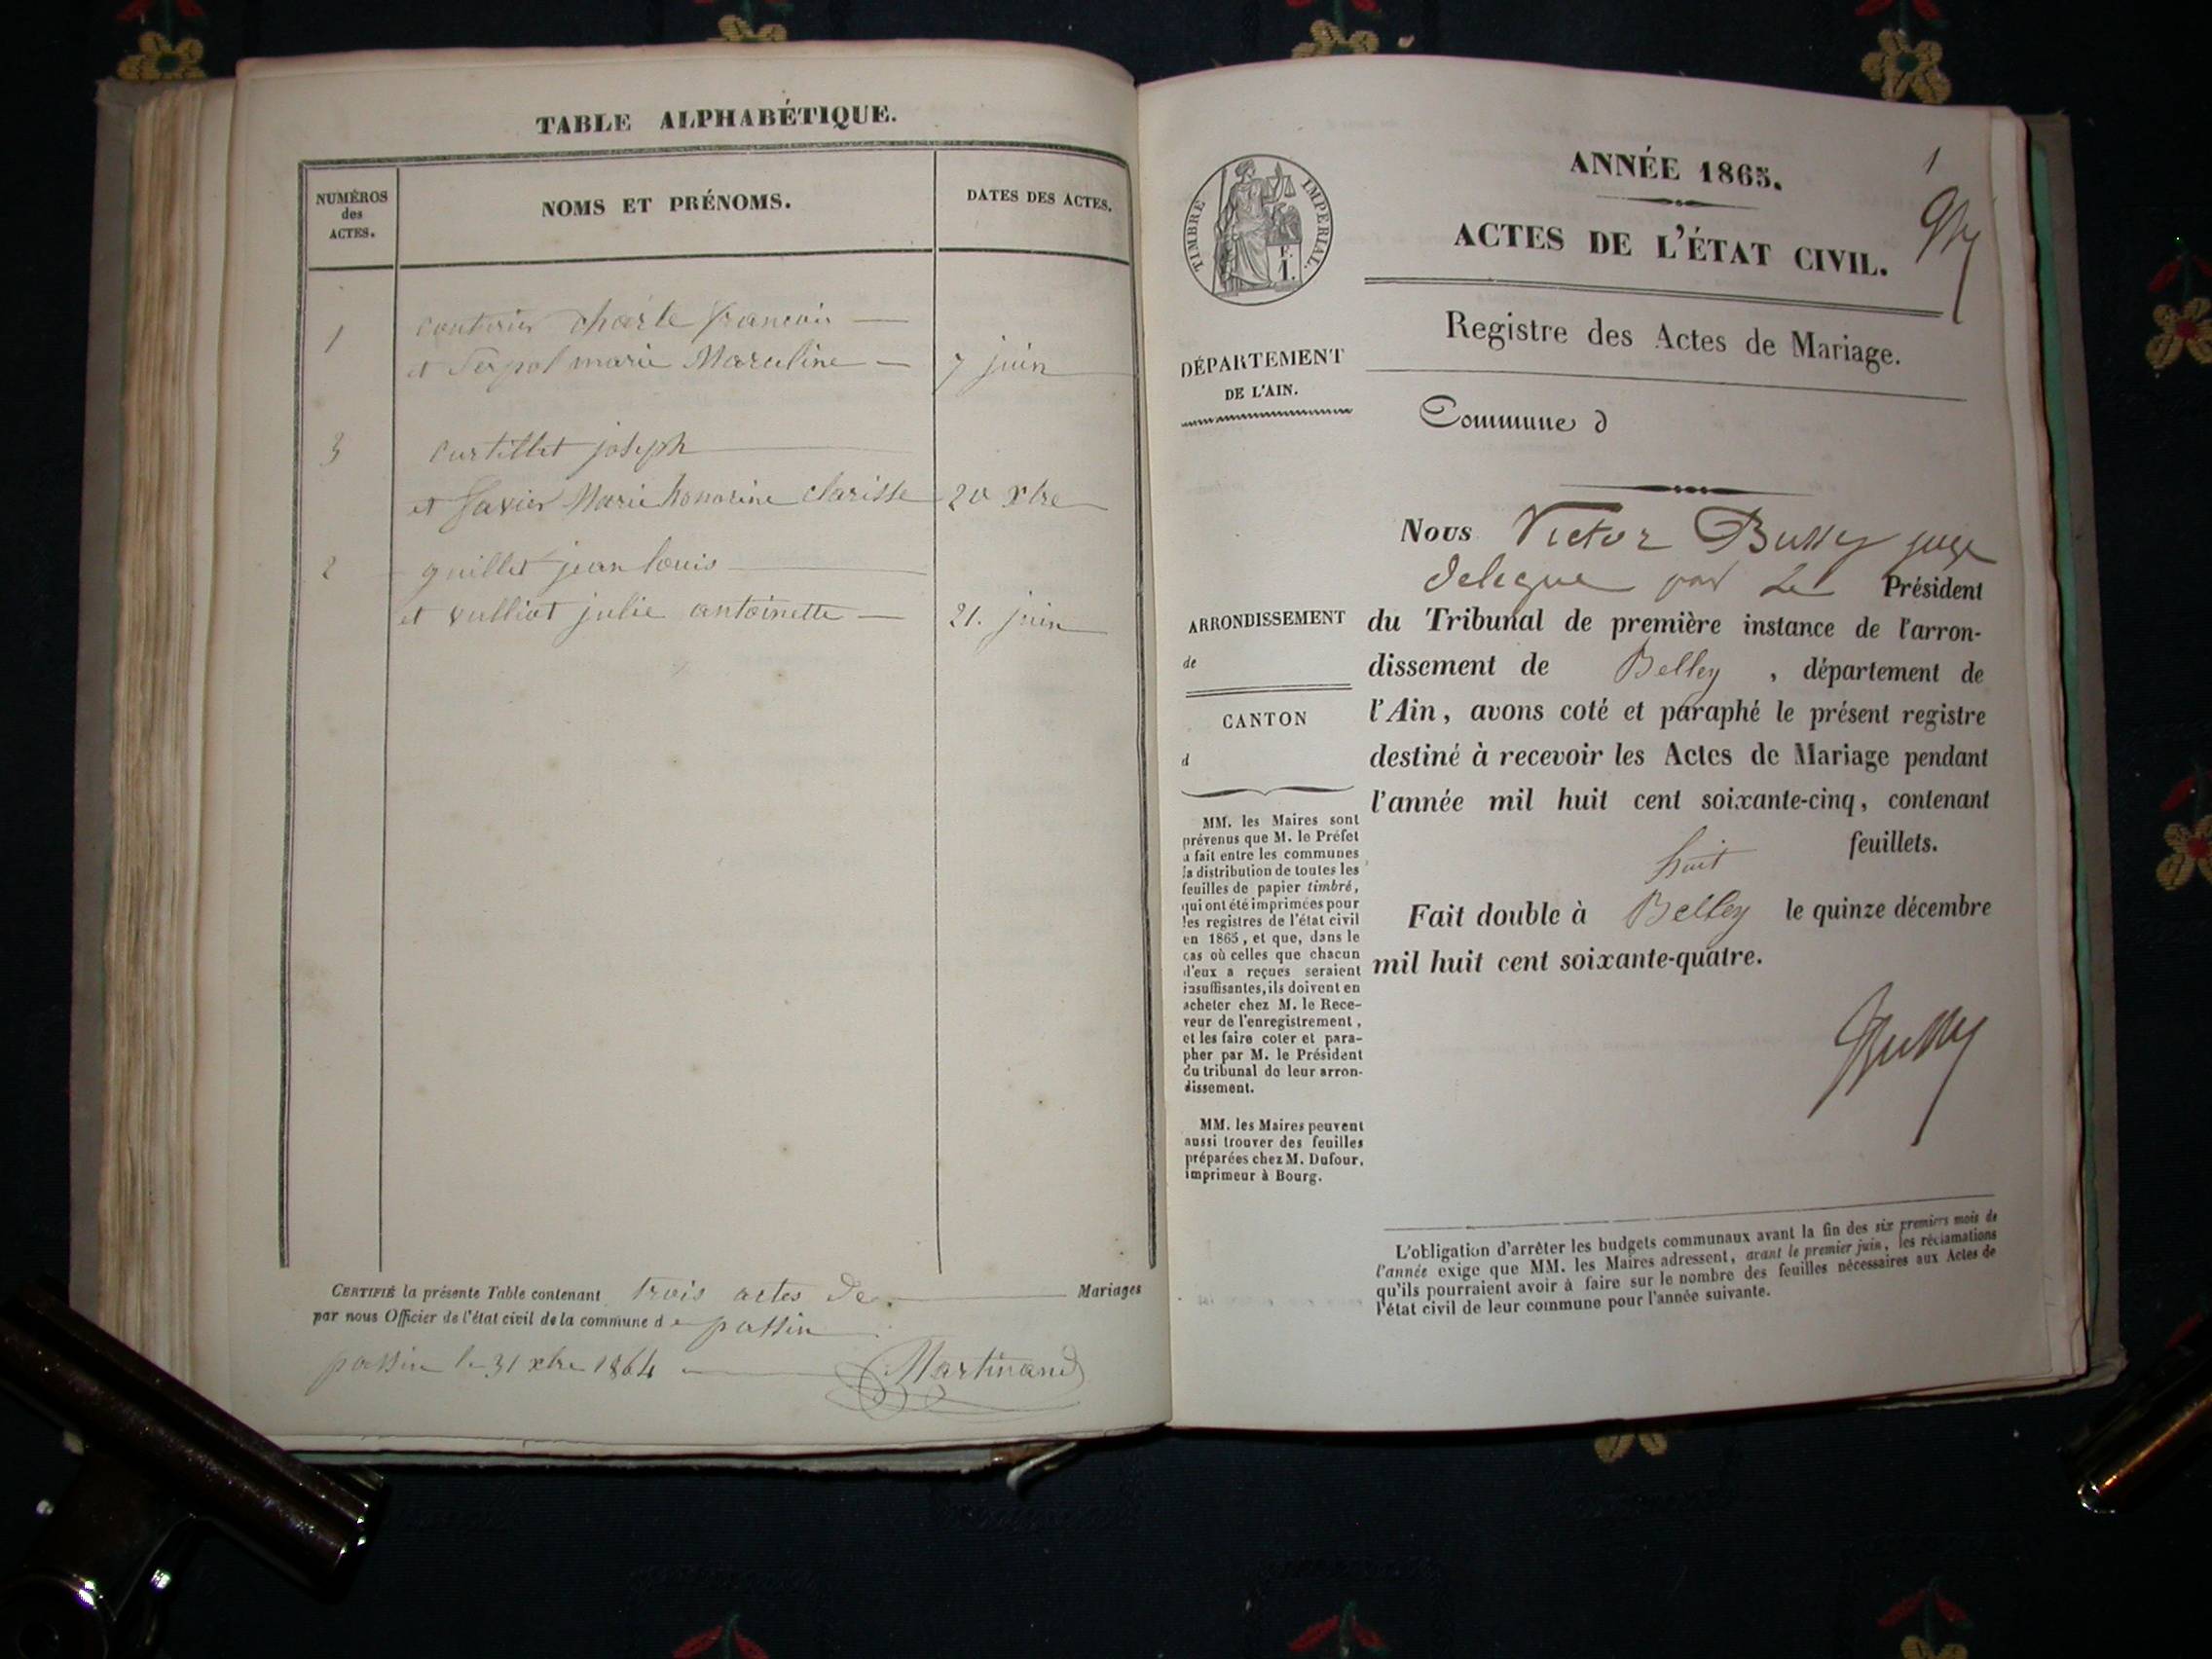 TABLE ALPHABÉTIQUE.
NUMÉROS
des
ACTES.
NOMS ET PRÉNOMS.
DATES DES ACTES.
1 couturier charle francois
et Serpol marie Marceline 7 juin
3 Curtillet joseph
et Savier Marie honorine clarisse 20 xbre
2 guillet jean louis
et vulliot julie antoinette 21. juin
CERTIFIÉ la présente Table contenant trois actes de Mariages
par nous Officier de l'état civil de la commune de passin
passin le 31 xbre 1864 Martinand
1
ANNÉE 1865.
ACTES DE L'ÉTAT CIVIL.
TIMBRE IMPERIAL.
1.
Registre des Actes de Mariage.
DÉPARTEMENT
DE L'AIN.
Commune d
Nous Victor Bussy juge
delegue par Le Président
ARRONDISSEMENT
de
CANTON
d
du Tribunal de première instance de l'arron-
dissement de Belley, département de
l'Ain, avons coté et paraphé le présent registre
destiné à recevoir les Actes de Mariage pendant
l'année mil huit cent soixante-cinq, contenant
huit feuillets.
Fait double à Belley le quinze décembre
mil huit cent soixante-quatre.
Bussy
MM. les Maires sont
prévenus que M. le Préfet
a fait entre les communes
la distribution de toutes les
feuilles de papier timbré,
qui ont été imprimées pour
les registres de l'état civil
en 1865, et que, dans le
cas où celles que chacun
d'eux a reçues seraient
insuffisantes, ils doivent en
acheter chez M. le Rece-
veur de l'enregistrement,
et les faire coter et para-
pher par M. le Président
du tribunal de leur arron-
dissement.
MM. les Maires peuvent
aussi trouver des feuilles
préparées chez M. Dufour,
imprimeur à Bourg.
L'obligation d'arrêter les budgets communaux avant la fin des six premiers mois de
l'année exige que MM. les Maires adressent, avant le premier juin, les réclamations
qu'ils pourraient avoir à faire sur le nombre des feuilles nécessaires aux Actes de
l'état civil de leur commune pour l'année suivante.